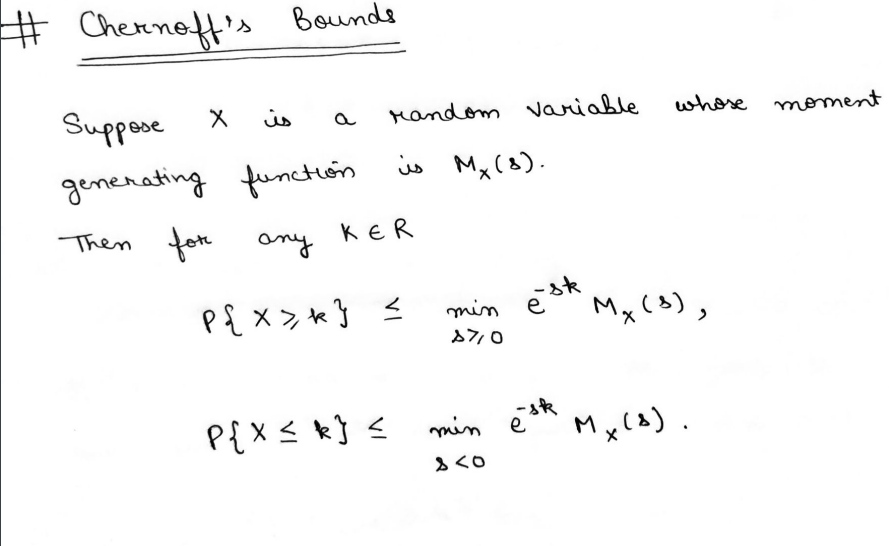 # Chernoff's Bounds
Suppose X is a random variable whose moment
generating function is Mₓ(s).
Then for any K ∈ R
P{X ≥ k} ≤ min e^{-sk} Mₓ(s),
s≥0
P{X ≤ k} ≤ min e^{-sk} Mₓ(s).
s<0